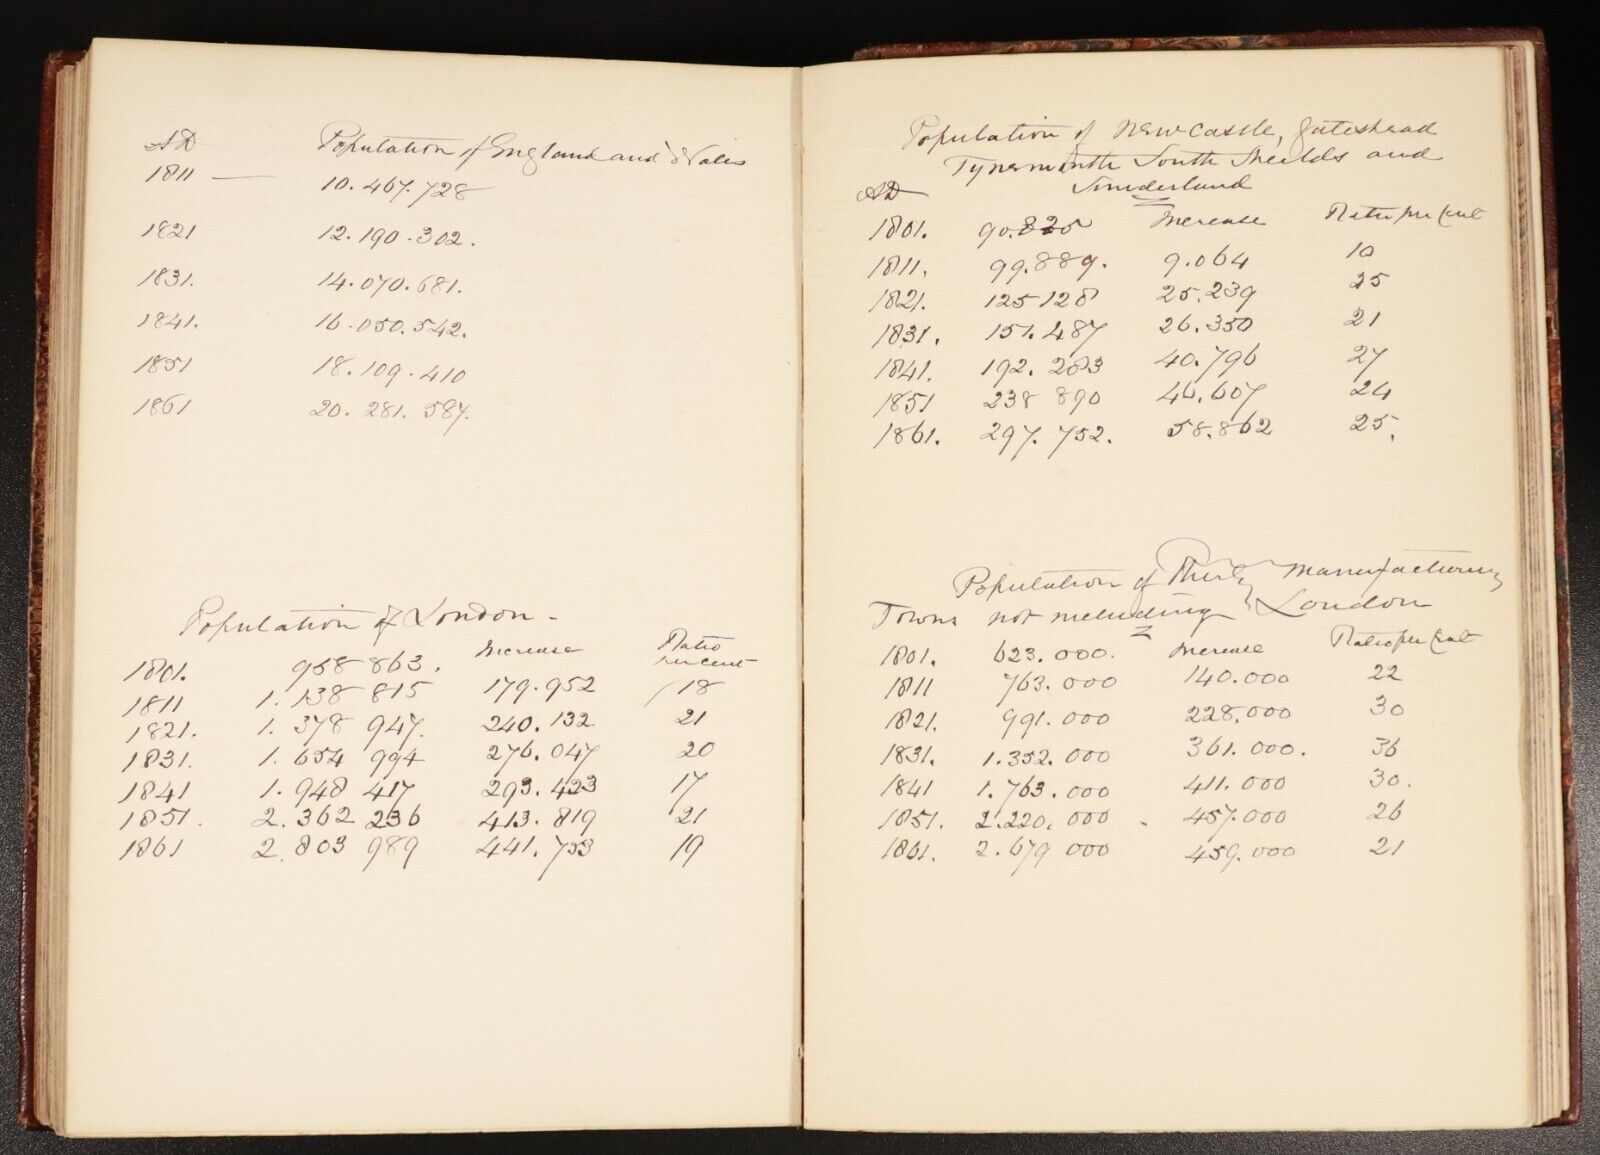 AD Population of England and Wales
1811 — 10.467.728
1821 12.190.302.
1831. 14.070.681.
1841. 16.050.542.
1851 18.109.410
1861 20.281.587.
Population of London -
Increase Ratio per cent
1801. 958 863.
1811 1.138 815 179.952 18
1821. 1.378 947. 240.132 21
1831. 1.654 994 276.047 20
1841 1.948 417 293.423 17
1851. 2.362 236 413.819 21
1861 2.803 989 441.753 19
Population of Newcastle, Gateshead
Tynemouth South Shields and
Sunderland
AD
1801. 90.825 Increase Ratio per Cent
1811. 99.889. 9.064 10
1821. 125 128 25.239 25
1831. 151.487 26.350 21
1841. 192.283 40.796 27
1851 238 890 46.607 24
1861. 297.752. 58.862 25.
Population of Thirty Manufacturing
Towns not including London
1801. 623.000. Increase Ratio per Cent
1811 763.000 140.000 22
1821. 991.000 228.000 30
1831. 1.352.000 361.000. 36
1841 1.763.000 411.000 30.
1851. 2.220.000 - 457.000 26
1861. 2.679 000 459.000 21